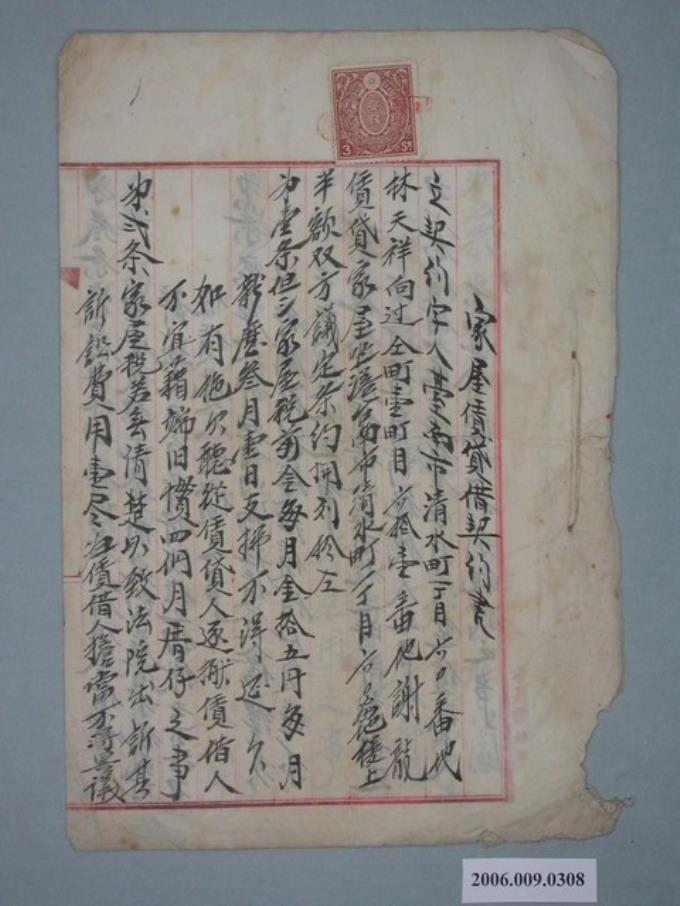 家屋賃貸借契約書
立契約字人臺南市清水町一丁目六〇番地
林天祥向过仝町壹町目六拾壹番地謝龍
賃貸家屋坐落台南市清水町一丁目六〇號楼上
半額双方議定条約開列於左
第壹条但シ家屋税前金每月金拾五円每月
新曆叁月壹日支拂不得延欠
如有拖欠聽從賃貸人逐献賃借人
不宜藉端旧慣四個月厝仔之事
第弐条家屋税若無清楚以致法院出訴其
訴訟費用壹尽归賃借人擔當不得異議
3 Sn
2006.009.0308